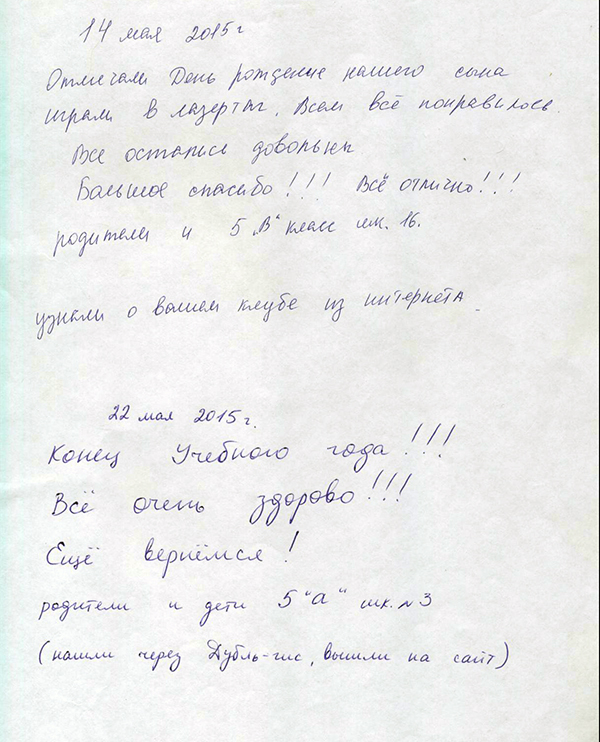 14 мая 2015г
Отмечали День рождение нашего сына
играли в лазертаг. Всем всё понравилось.
Все остались довольны
Большое спасибо!!! Всё отлично!!!
родители и 5 „В" класс шк. 16.
узнали о вашем клубе из интернета.
22 мая 2015г.
Конец Учебного года!!!
Всё очень здорово!!!
Ещё вернёмся!
родители и дети 5 "а" шк. №3
(нашли через Дубль-гис, вышли на сайт)